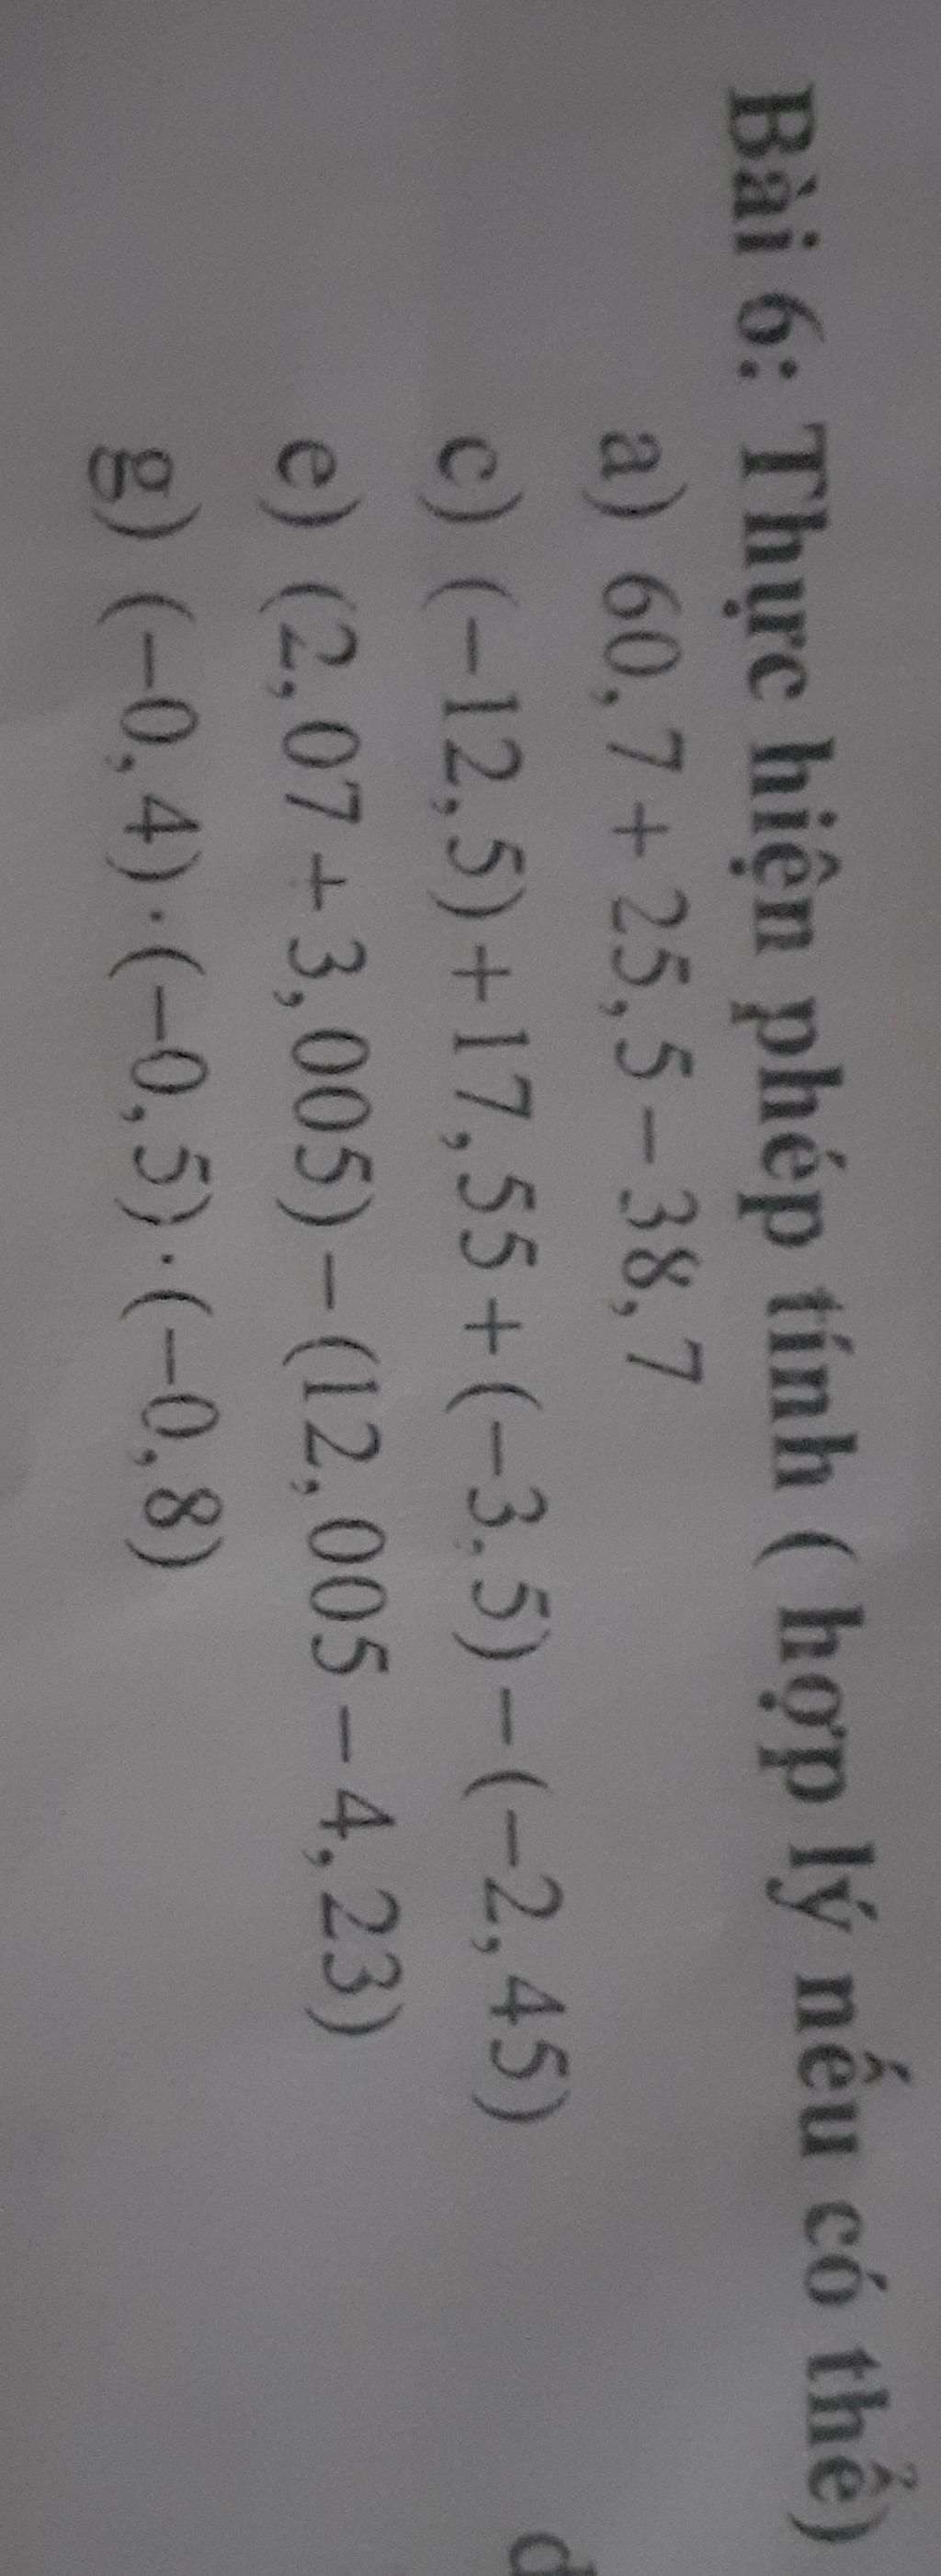 Bài 6: Thực hiện phép tính ( hợp lý nếu có thể)
a) 60,7 + 25,5 − 38,7
c) (−12,5) + 17,55 + (−3,5) − (−2,45)
d
e) (2,07 + 3,005) − (12,005 − 4,23)
g) (−0,4) · (−0,5) · (−0,8)